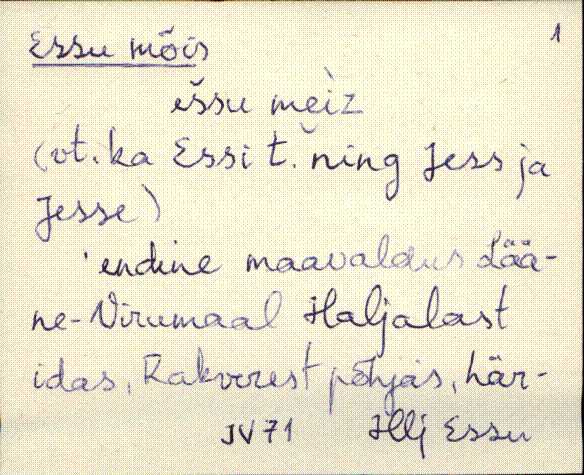 Essu mõis 1
eššu meìz
(vt. ka Essi t. ning Jess ja
Jesse)
endine maavaldus Lää-
ne-Virumaal Haljalast
idas, Rakverest põhjas, här-
JV 71 Hlj Essu